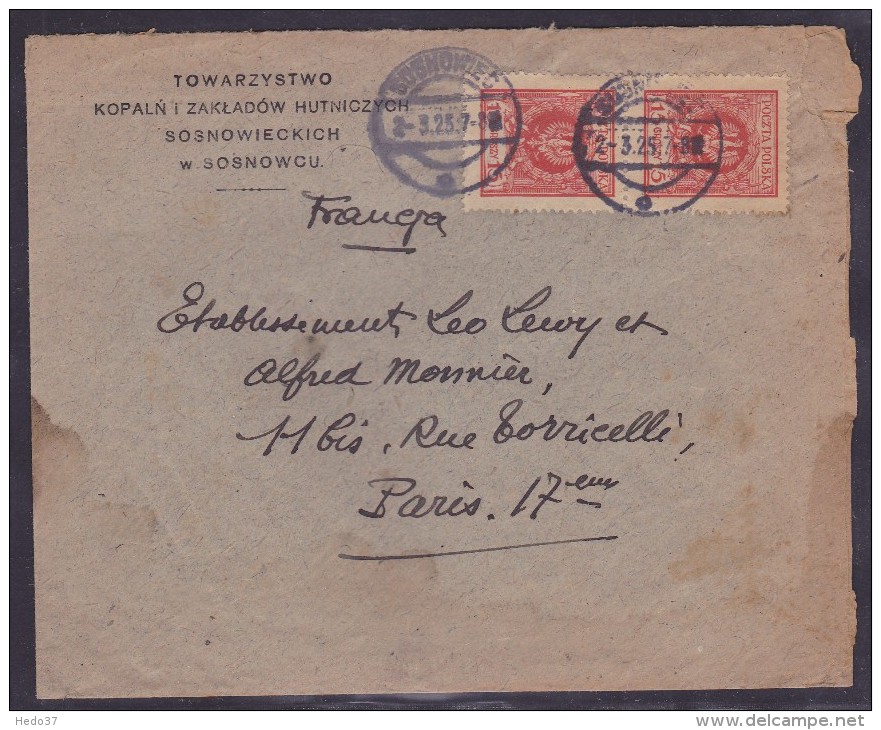 TOWARZYSTWO
KOPALŃ I ZAKŁADÓW HUTNICZYCH
SOSNOWIECKICH
w SOSNOWCU.
SOSNOWIEC
2-3.25.7-8
2-3.25.7-8
POCZTA POLSKA
15
Francja
Etablissements Leo Lewy et
Alfred Monnier,
11 bis, Rue Torricelli,
Paris. 17eme
Hedo37
delcampe.net